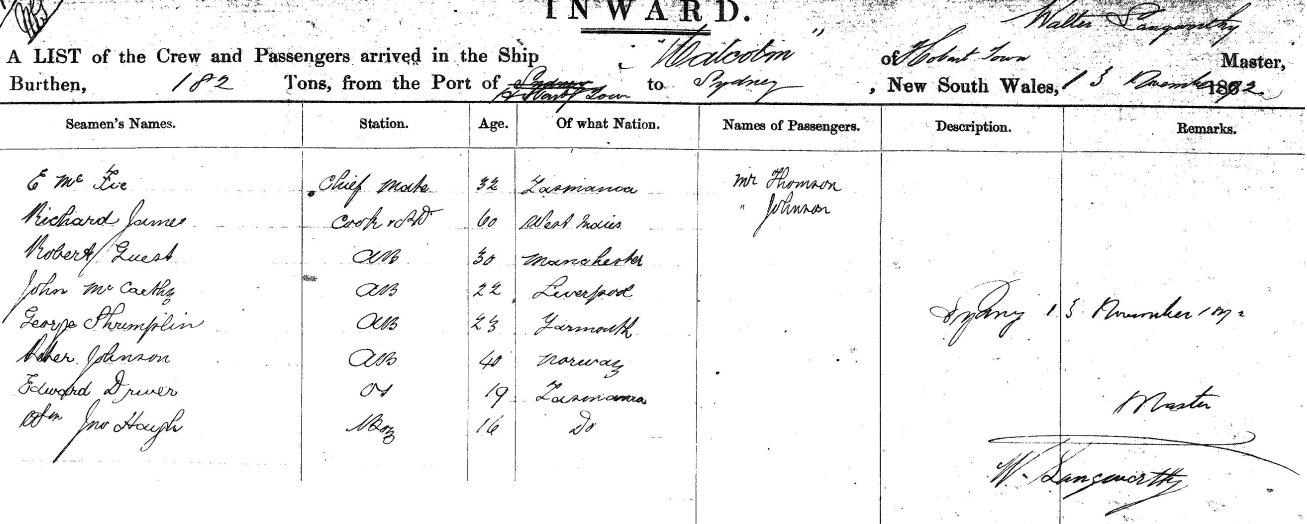 INWARD.
Walter Langworthy
A LIST of the Crew and Passengers arrived in the Ship "Malcolm" of Hobart Town Master,
Burthen, 182 Tons, from the Port of Sydney Hobart Town to Sydney, New South Wales, 13 November 1872
Seamen's Names. Station. Age. Of what Nation. Names of Passengers. Description. Remarks.
E Mc Fie Chief Mate 32 Tasmania Mr Thomson
Richard James Cook & Std 60 West Indies " Johnson
Robert Guest AB 30 Manchester
John McCarthy AB 22 Liverpool
George Shrimplin AB 23 Yarmouth Sydney 13 November 1872
Peter Johnson AB 40 Norway
Edward Driver OS 19 Tasmania Master
Wm Jno Haugh Boy 16 Do
W. Langworthy